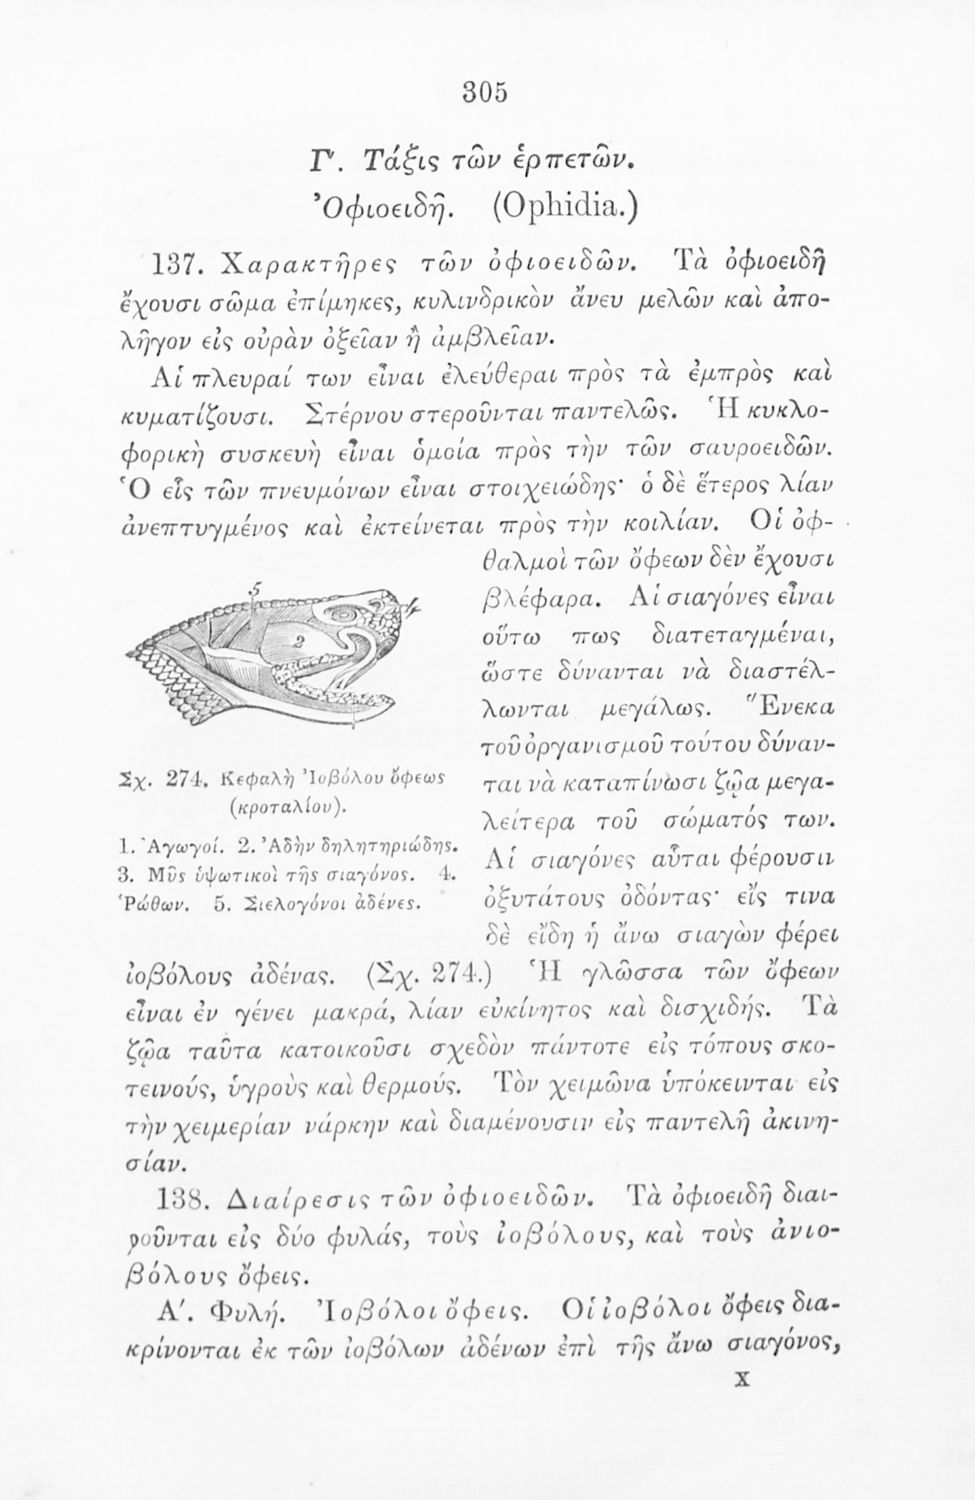 305
Γ'. Τάξις τῶν ἑρπετῶν.
Ὀφιοειδῆ. (Ophidia.)
137. Χαρακτῆρες τῶν ὀφιοειδῶν. Τὰ ὀφιοειδῆ
ἔχουσι σῶμα ἐπίμηκες, κυλινδρικὸν ἄνευ μελῶν καὶ ἀπο-
λῆγον εἰς οὐρὰν ὀξεῖαν ἢ ἀμβλεῖαν.
Αἱ πλευραί των εἶναι ἐλεύθεραι πρὸς τὰ ἐμπρὸς καὶ
κυματίζουσι. Στέρνου στεροῦνται παντελῶς. Ἡ κυκλο-
φορικὴ συσκευὴ εἶναι ὁμοία πρὸς τὴν τῶν σαυροειδῶν.
Ὁ εἷς τῶν πνευμόνων εἶναι στοιχειώδης· ὁ δὲ ἕτερος λίαν
ἀνεπτυγμένος καὶ ἐκτείνεται πρὸς τὴν κοιλίαν. Οἱ ὀφ-
θαλμοὶ τῶν ὄφεων δὲν ἔχουσι
βλέφαρα. Αἱ σιαγόνες εἶναι
οὕτω πως διατεταγμέναι,
ὥστε δύνανται νὰ διαστέλ-
λωνται μεγάλως. Ἕνεκα
τοῦ ὀργανισμοῦ τούτου δύναν-
ται νὰ καταπίνωσι ζῷα μεγα-
λείτερα τοῦ σώματός των.
Αἱ σιαγόνες αὗται φέρουσιν
ὀξυτάτους ὀδόντας· εἴς τινα
δὲ εἴδη ἡ ἄνω σιαγὼν φέρει
5
2
Σχ. 274. Κεφαλὴ Ἰοβόλου ὄφεως
(κροταλίου).
1. Ἀγωγοί. 2. Ἀδὴν δηλητηριώδης.
3. Μῦς ὑψωτικοὶ τῆς σιαγόνος. 4.
Ῥώθων. 5. Σιελογόνοι ἀδένες.
ἰοβόλους ἀδένας. (Σχ. 274.) Ἡ γλῶσσα τῶν ὄφεων
εἶναι ἐν γένει μακρά, λίαν εὐκίνητος καὶ δισχιδής. Τὰ
ζῷα ταῦτα κατοικοῦσι σχεδὸν πάντοτε εἰς τόπους σκο-
τεινούς, ὑγροὺς καὶ θερμούς. Τὸν χειμῶνα ὑπόκεινται εἰς
τὴν χειμερίαν νάρκην καὶ διαμένουσιν εἰς παντελῆ ἀκινη-
σίαν.
138. Διαίρεσις τῶν ὀφιοειδῶν. Τὰ ὀφιοειδῆ διαι-
ροῦνται εἰς δύο φυλάς, τοὺς ἰοβόλους, καὶ τοὺς ἀνιο-
βόλους ὄφεις.
Α'. Φυλή. Ἰοβόλοι ὄφεις. Οἱ ἰοβόλοι ὄφεις δια-
κρίνονται ἐκ τῶν ἰοβόλων ἀδένων ἐπὶ τῆς ἄνω σιαγόνος,
Χ